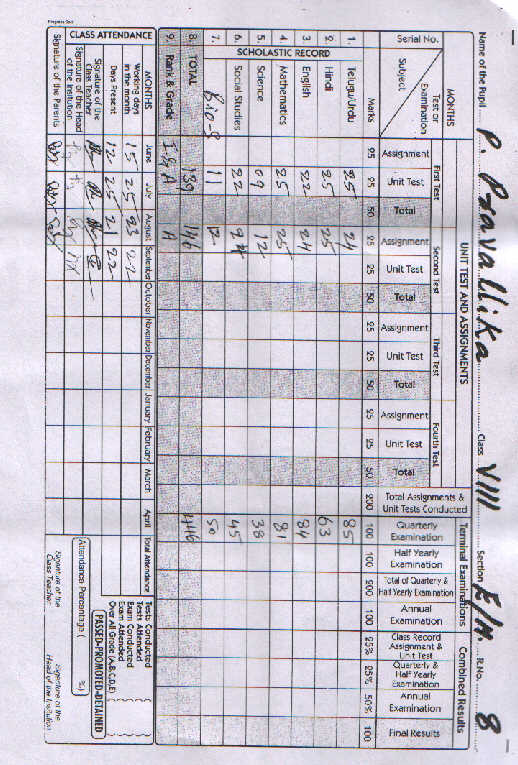 Name of the Pupil P. Pravallika Class VIII Section E/M R.No. 8
Serial No.
Subject
MONTHS
Test or
Examination
Marks
UNIT TEST AND ASSIGNMENTS
Terminal Examinations
Combined Results
First Test
Second Test
Third Test
Fourth Test
Assignment 25
Unit Test 25
Total 50
Assignment 25
Unit Test 25
Total 50
Assignment 25
Unit Test 25
Total 50
Assignment 25
Unit Test 25
Total 50
Total Assignments &
Unit Tests Conducted 200
Quarterly
Examination 100
Half Yearly
Examination 100
Total of Quarterly &
Half Yearly Examination 200
Annual
Examination 100
Class Record
Assignment &
Unit Test 25%
Quarterly &
Half Yearly
Examination 25%
Annual
Examination 50%
Final Results 100
SCHOLASTIC RECORD
1. Telugu/Urdu 25 24 85
2. Hindi 25 25 63
3. English 22 24 84
4. Mathematics 25 25 81
5. Science 09 12 38
6. Social Studies 22 24 45
7. Bio.S 11 12 50
8. TOTAL 139 146 446
9. Rank & Grade I & A A
CLASS ATTENDANCE
MONTHS June July August September October November December January February March April Total Attendance
Working days
in the month 15 25 23 22
Days Present 12 25 21 22
Signature of the
Class Teacher
Signature of the Head
of the Institution
Signature of the Parents
Tests Conducted
Tests Attended
Exam Conducted
Exam Attended
Over All Grade (A,B,C,D,E)
PASSED-PROMOTED-DETAINED
Attendance Percentage ( %)
Signature of the
Class Teacher
Signature of the
Head of the Institution